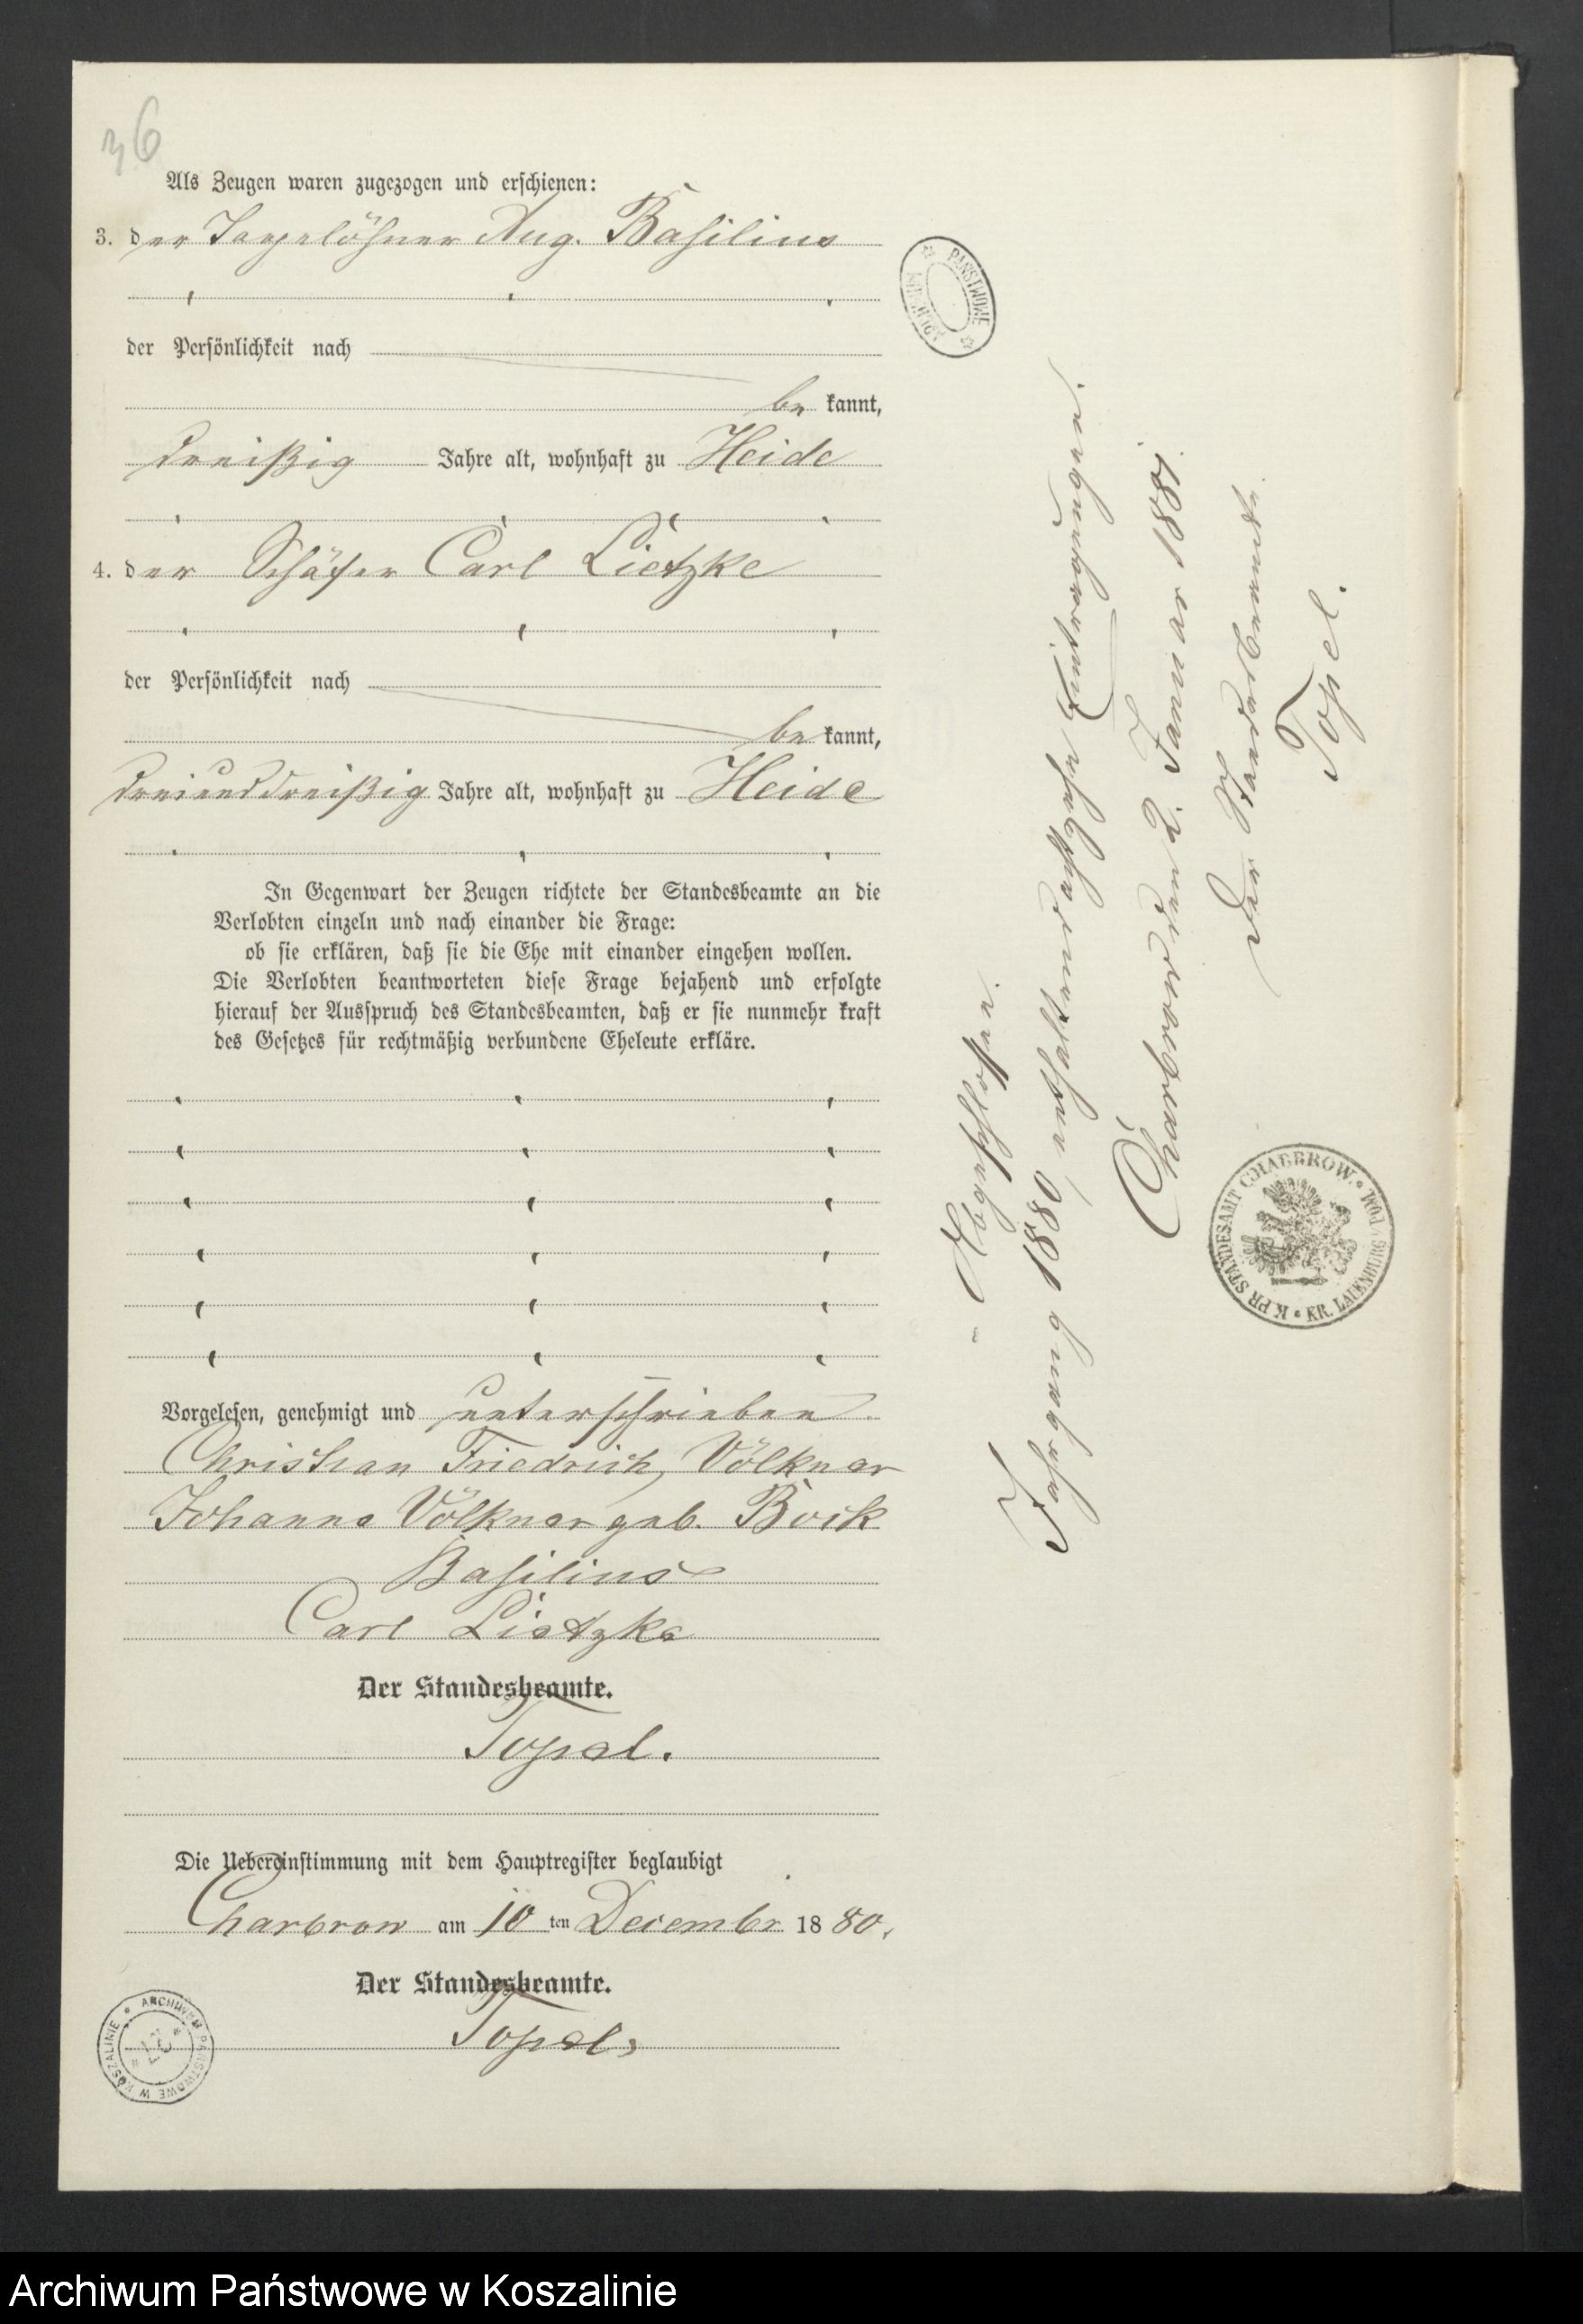 36
Als Zeugen waren zugezogen und erschienen:
3. der Tagelöhner Aug. Basilius
der Persönlichkeit nach
be kannt,
dreißig Jahre alt, wohnhaft zu Heide
4. der Schäfer Carl Lietzke
der Persönlichkeit nach
be kannt,
dreiunddreißig Jahre alt, wohnhaft zu Heide
In Gegenwart der Zeugen richtete der Standesbeamte an die
Verlobten einzeln und nach einander die Frage:
ob sie erklären, daß sie die Ehe mit einander eingehen wollen.
Die Verlobten beantworteten diese Frage bejahend und erfolgte
hierauf der Ausspruch des Standesbeamten, daß er sie nunmehr kraft
des Gesetzes für rechtmäßig verbundene Eheleute erkläre.
Vorgelesen, genehmigt und unterschrieben
Christian Friedrich Völkner
Johanne Völkner geb. Bock
Basilius
Carl Lietzke
Der Standesbeamte.
Topel.
Die Uebereinstimmung mit dem Hauptregister beglaubigt
Charbrow am 10 ten Decembr 18 80.
Der Standesbeamte.
Topel,
Abgeschlossen.
Jahrgang 1880, enthaltend Eintragungen.
Charbrow den 2. Januar 1881.
Der Standesbeamte
Topel.
K. PR. STANDESAMT CHARBROW. • KR. LAUENBURG POM.
PAŃSTWOWE
ARCHIWUM PAŃSTWOWE W KOSZALINIE
Archiwum Państwowe w Koszalinie